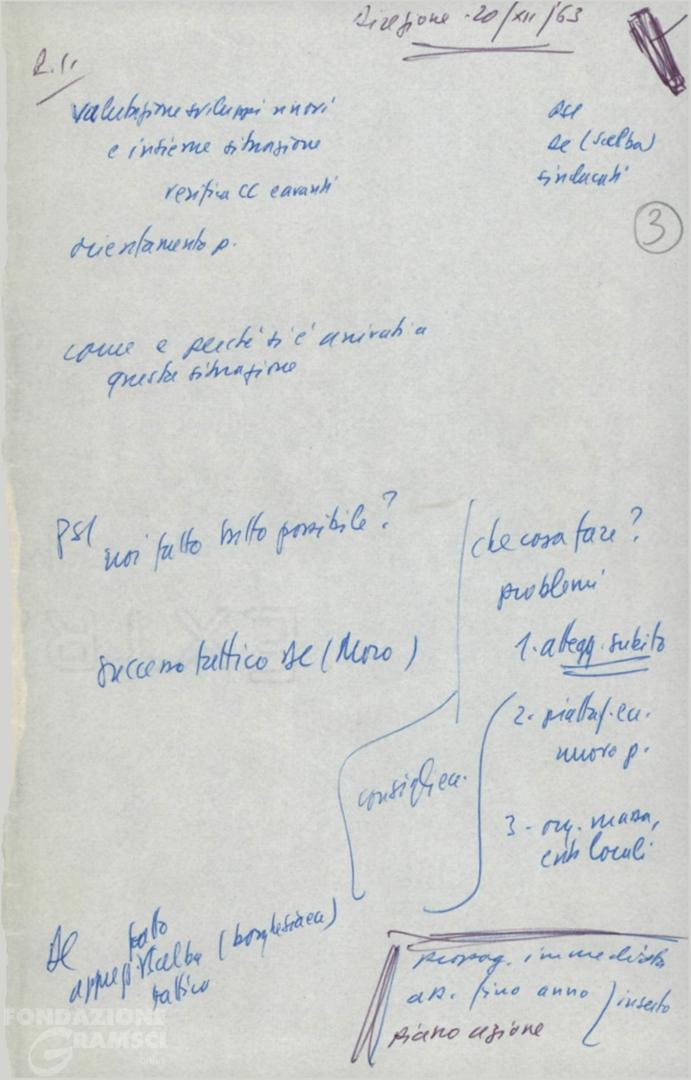 Direzione - 20/XII/63
R.ti
valutazione sviluppi nuovi
e insieme situazione
verifica CC e avanti
orientamento p.
PSI
DC (Scelba)
sindacati
3
come e perché si è arrivati a
questa situazione
PSI
noi fatto tutto possibile?
successo tattico DC (Moro)
che cosa fare?
problemi
1. attegg. subito
2. piattaf. ec.
nuovo p.
3 - org. massa,
enti locali
consiglieri
DC fatto
Scelba
tattico
propag. immediata
ap. fino anno
inserto
piano azione
FONDAZIONE
GRAMSCI